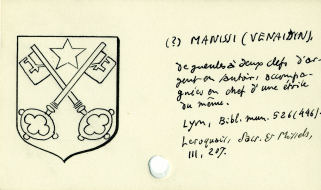 (?) MANISSI (VENAISSIN),
de gueules à deux clefs d'ar-
gent en sautoir, accompa-
gnées en chef d'une étoile
du même.
Lyon, Bibl. mun. 526 (446).
Leroquais, Sacr. et Missels,
III, 207.